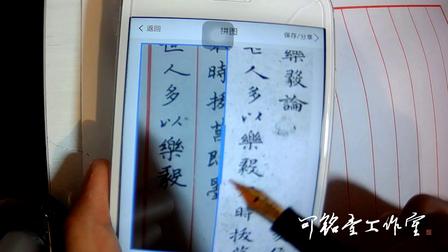 返回
拼图
保存/分享
樂毅論
世人多以樂毅
時拔
時拔莒即墨
世人多以樂毅
可铭重工作室